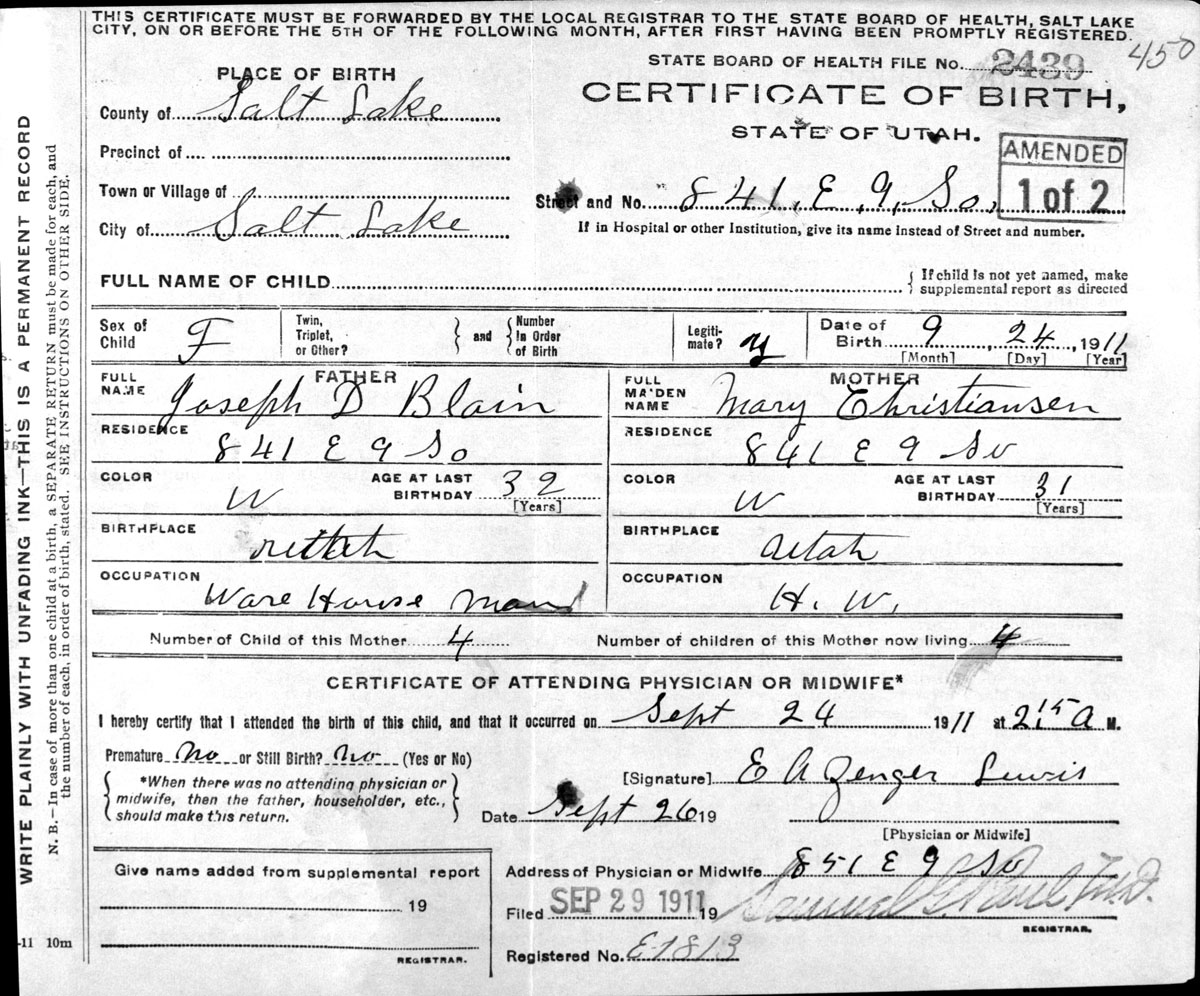 THIS CERTIFICATE MUST BE FORWARDED BY THE LOCAL REGISTRAR TO THE STATE BOARD OF HEALTH, SALT LAKE
CITY, ON OR BEFORE THE 5TH OF THE FOLLOWING MONTH, AFTER FIRST HAVING BEEN PROMPTLY REGISTERED.
450
STATE BOARD OF HEALTH FILE No. 2439
PLACE OF BIRTH
CERTIFICATE OF BIRTH,
STATE OF UTAH.
AMENDED
1 of 2
County of Salt Lake
Precinct of
Town or Village of
Street and No. 841, E, 9, So,
City of Salt Lake
If in Hospital or other Institution, give its name instead of Street and number.
FULL NAME OF CHILD
If child is not yet named, make
supplemental report as directed
Sex of Child F
Twin, Triplet, or Other?
and
Number In Order of Birth
Legiti-mate? y
Date of Birth 9, 24, 1911
[Month] [Day] [Year]
FATHER
FULL NAME Joseph D Blain
RESIDENCE 841 E 9 So
COLOR W
AGE AT LAST BIRTHDAY 32
[Years]
BIRTHPLACE
OCCUPATION Ware House Man
MOTHER
FULL MAIDEN NAME Mary Christiansen
RESIDENCE 841 E 9 So
COLOR W
AGE AT LAST BIRTHDAY 31
[Years]
BIRTHPLACE Utah
OCCUPATION H. W.
Number of Child of this Mother 4
Number of children of this Mother now living 4
CERTIFICATE OF ATTENDING PHYSICIAN OR MIDWIFE*
I hereby certify that I attended the birth of this child, and that it occurred on Sept 24 1911 at 2 15 A M.
Premature No or Still Birth? No (Yes or No)
*When there was no attending physician or
midwife, then the father, householder, etc.,
should make this return.
[Signature] E A Zenger Lewis
Date Sept 26 19
[Physician or Midwife]
Give name added from supplemental report
19
REGISTRAR.
Address of Physician or Midwife 851 E 9 So
Filed SEP 29 1911 19
Samuel G. Paul, M.D.
REGISTRAR.
Registered No. E1813
-11 10m
WRITE PLAINLY WITH UNFADING INK—THIS IS A PERMANENT RECORD
N. B.—In case of more than one child at a birth, a SEPARATE RETURN must be made for each, and
the number of each, in order of birth, stated. SEE INSTRUCTIONS ON OTHER SIDE.